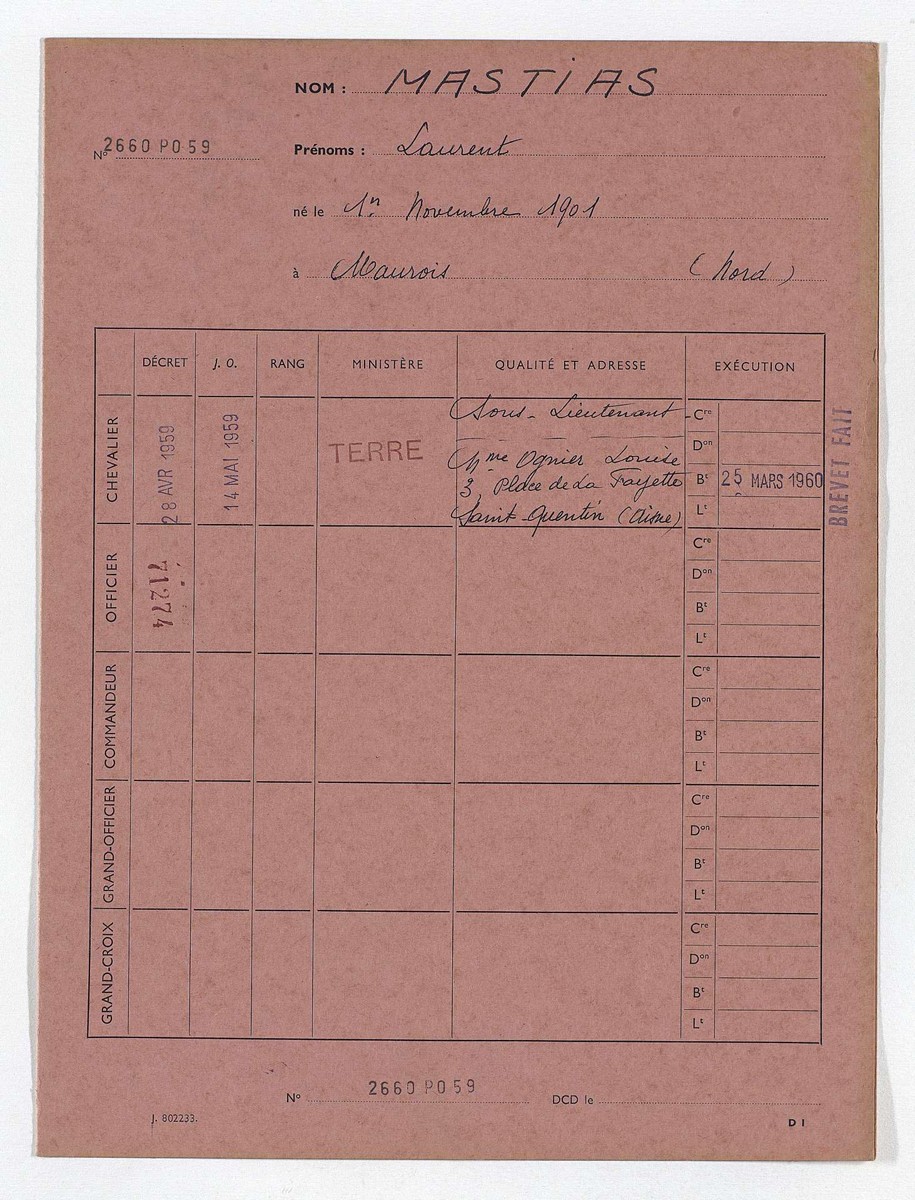 NOM : MASTIAS
N° 2660 PO 59
Prénoms : Laurent
né le 1er Novembre 1901
à Maurois (Nord)
DÉCRET J. O. RANG MINISTÈRE QUALITÉ ET ADRESSE EXÉCUTION
CHEVALIER
28 AVR 1959
14 MAI 1959
TERRE
Sous-Lieutenant
Mme Ognier Louise
3, Place de La Fayette
Saint-Quentin (Aisne)
Cre
Don
Bt 25 MARS 1960
Lt
BREVET FAIT
OFFICIER
71274
Cre
Don
Bt
Lt
COMMANDEUR
Cre
Don
Bt
Lt
GRAND-OFFICIER
Cre
Don
Bt
Lt
GRAND-CROIX
Cre
Don
Bt
Lt
N° 2660 PO 59 DCD le
J. 802233.
D I